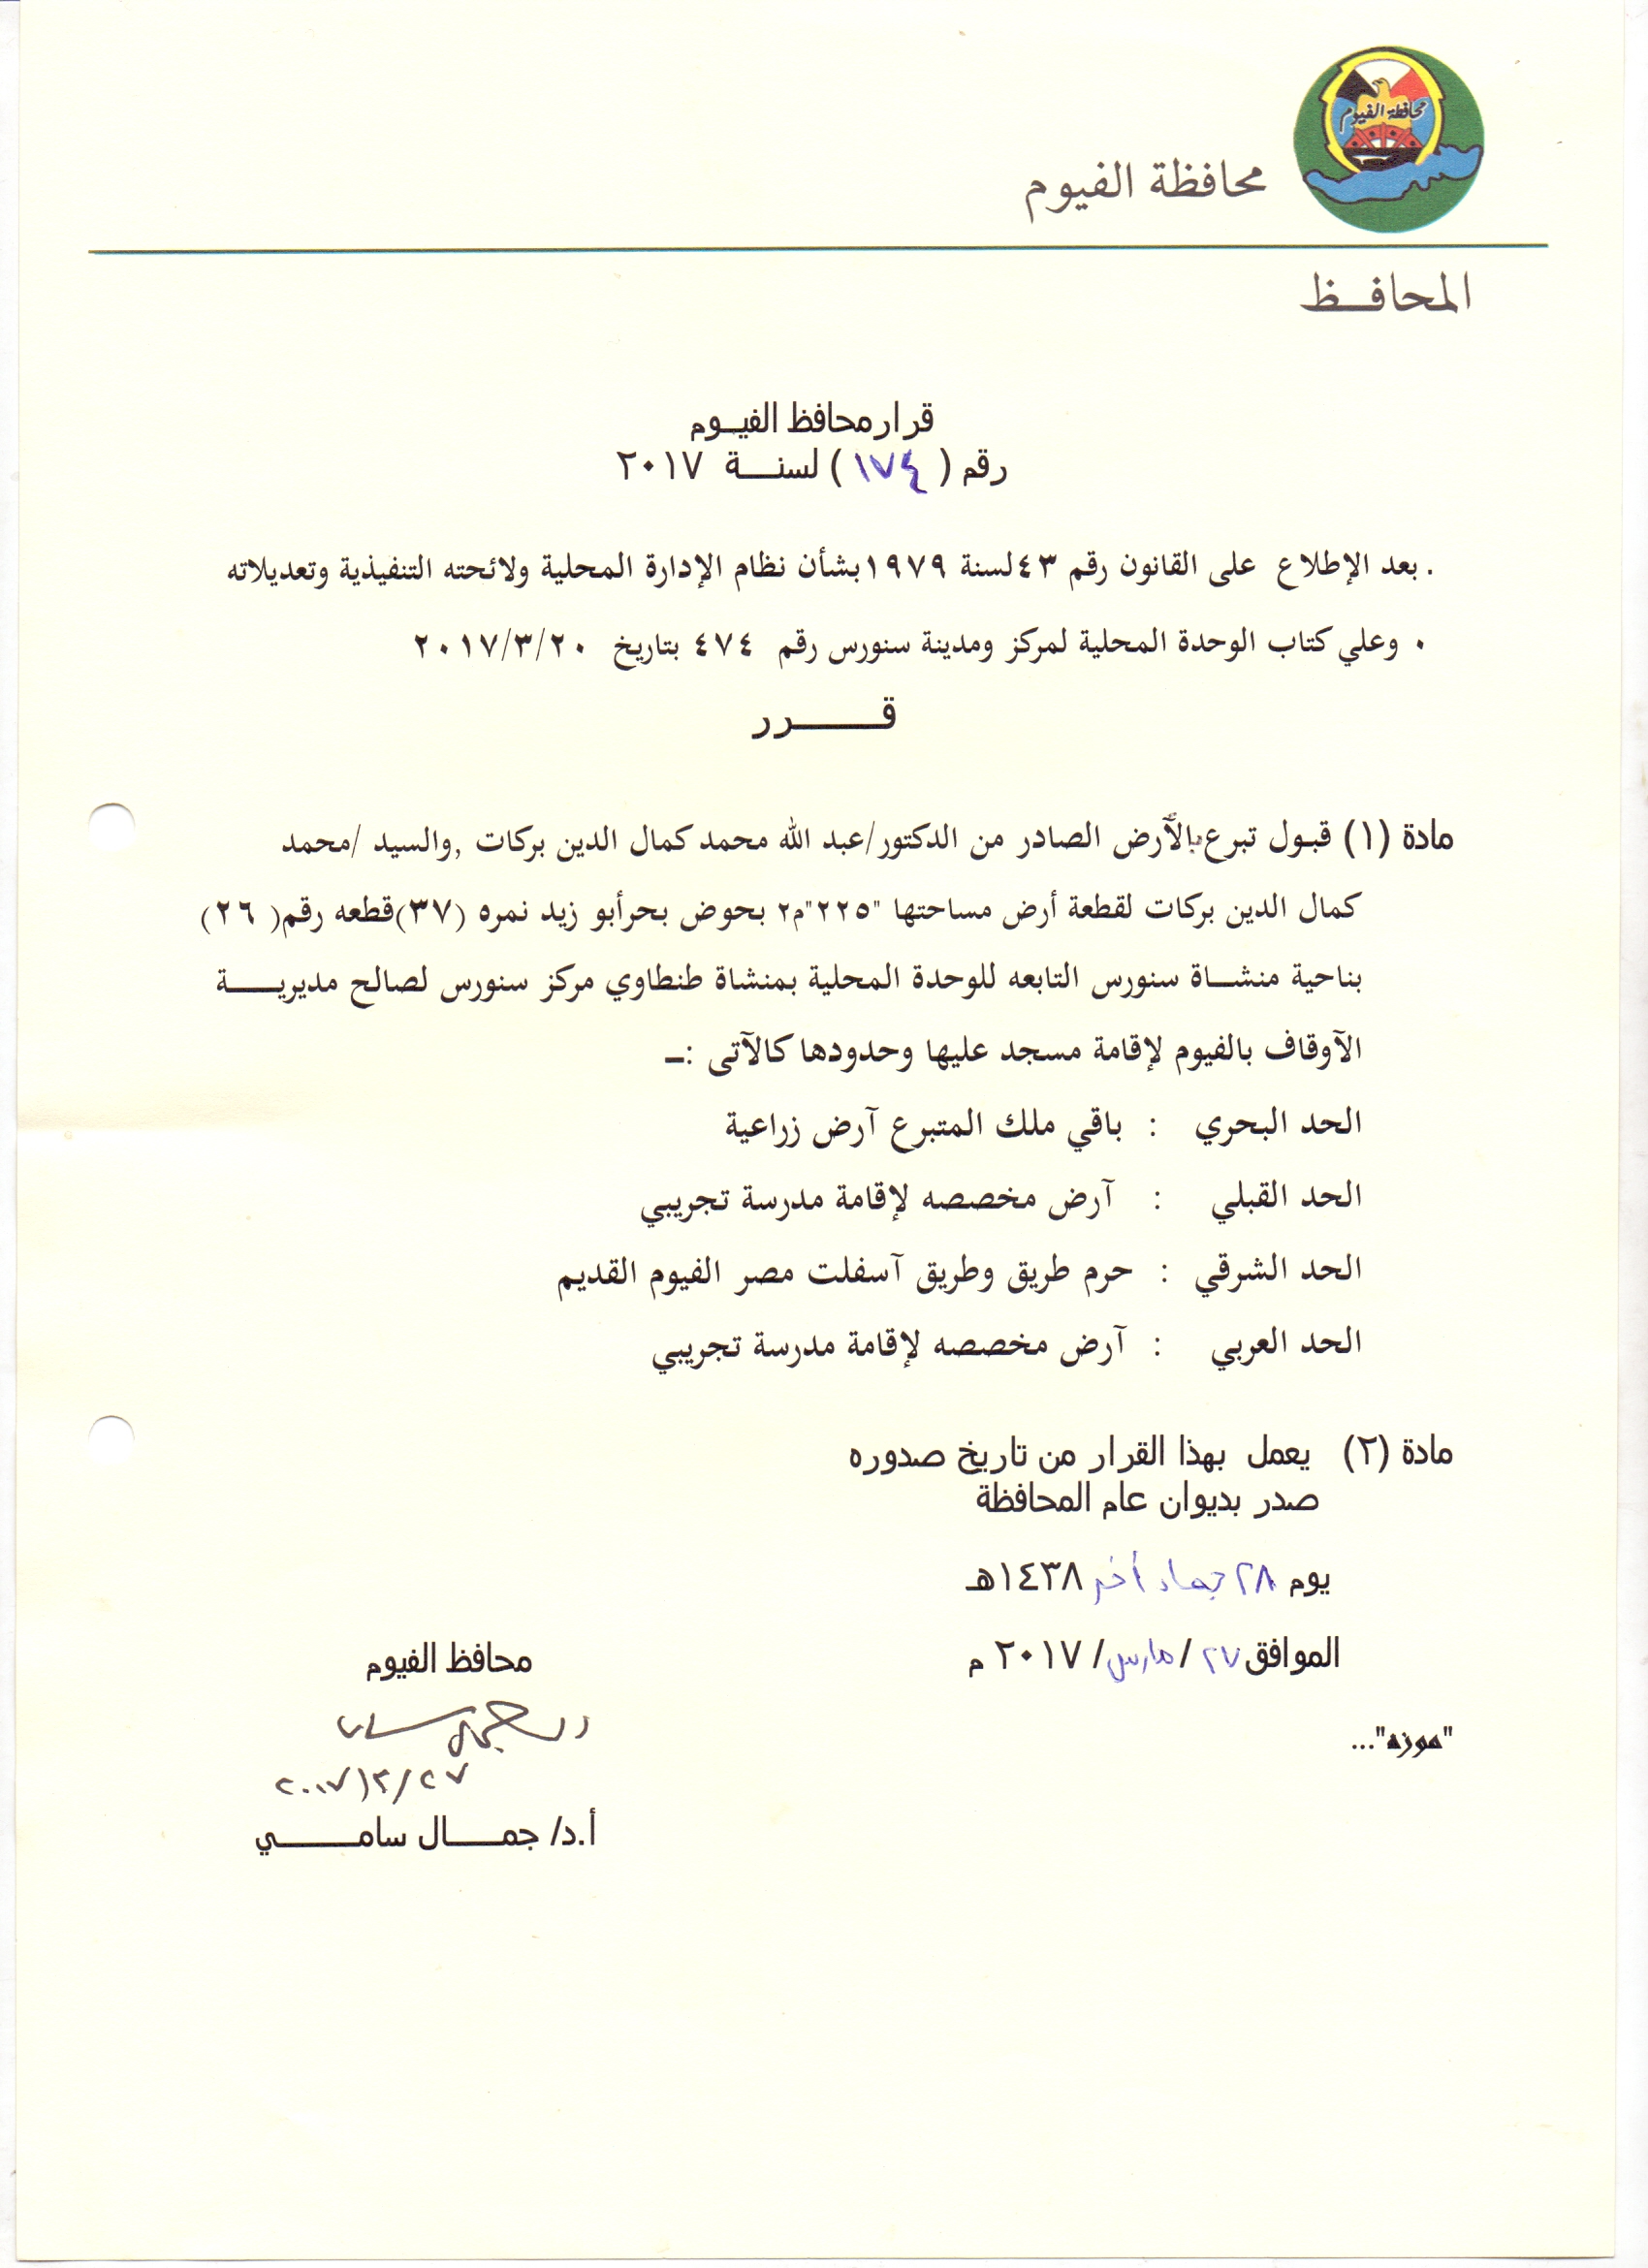 محافظة الفيوم
محافظة الفيوم
المحافـــظ
قرار محافظ الفيــوم
رقم ( ١٧٤ ) لسنـــة ٢٠١٧
. بعد الإطلاع على القانون رقم ٤٣ لسنة ١٩٧٩ بشأن نظام الإدارة المحلية ولائحته التنفيذية وتعديلاته
٠ وعلي كتاب الوحدة المحلية لمركز ومدينة سنورس رقم ٤٧٤ بتاريخ ٢٠١٧/٣/٢٠
قــــــرر
مادة (١) قبـول تبرع بالآرض الصادر من الدكتور/عبد الله محمد كمال الدين بركات ,والسيد /محمد
كمال الدين بركات لقطعة أرض مساحتها "٢٢٥"م٢ بحوض بحرأبو زيد نمره (٣٧)قطعه رقم( ٢٦ )
بناحية منشـــاة سنورس التابعه للوحدة المحلية بمنشاة طنطاوي مركز سنورس لصالح مديريــــــة
الآوقاف بالفيوم لإقامة مسجد عليها وحدودها كالآتى :ـــ
الحد البحري : باقي ملك المتبرع آرض زراعية
الحد القبلي : آرض مخصصه لإقامة مدرسة تجريبي
الحد الشرقي : حرم طريق وطريق آسفلت مصر الفيوم القديم
الحد العربي : آرض مخصصه لإقامة مدرسة تجريبي
مادة (٢) يعمل بهذا القرار من تاريخ صدوره
صدر بديوان عام المحافظة
يوم ٢٨ جماد أخر ١٤٣٨هـ
الموافق ٢٧ / مارس / ٢٠١٧ م
محافظ الفيوم
٢٠١٧/٣/٢٧
"موزه"...
أ.د/ جمــــــال سامــــــــي